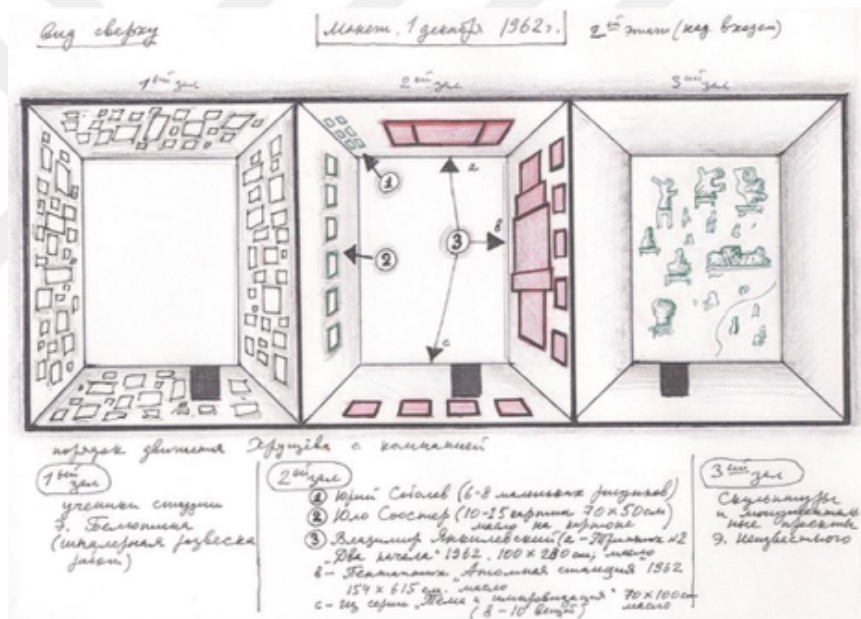 Вид сверху
Макет. 1 декабря 1962 г.
2ой этаж (над входом)
1ый зал
2ой зал
3ий зал
1
2
3
a
в
c
порядок движения Хрущёва с компанией
1ый зал
ученики студии
Э. Белютина
(шпалерная развеска
работ)
2ой зал
1 Юрий Соболев (6-8 маленьких рисунков)
2 Юло Соостер (10-15 картин 70 х 50 см)
масло на картоне
3 Владимир Янкилевский (a - Триптих №2
"Два начала" 1962. 100 х 280 см, масло
в - Пентаптих "Атомная станция" 1962
154 х 615 см. масло
c - из серии "Тема и импровизация" 70 х 100 см
(8-10 вещей) масло
3ий зал
Скульптуры
и монументаль
ные проекты
Э. Неизвестного